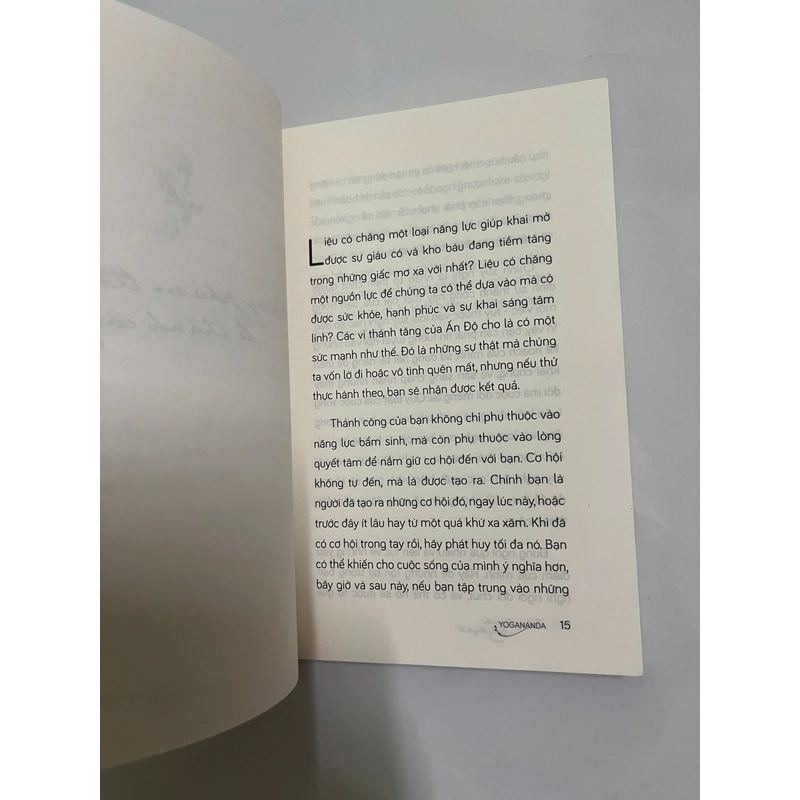 Liệu có chăng một loại năng lực giúp khai mở
được sự giàu có và kho báu đang tiềm tàng
trong những giấc mơ xa vời nhất? Liệu có chăng
một nguồn lực để chúng ta có thể dựa vào mà có
được sức khỏe, hạnh phúc và sự khai sáng tâm
linh? Các vị thánh tăng của Ấn Độ cho là có một
sức mạnh như thế. Đó là những sự thật mà chúng
ta vốn lờ đi hoặc vô tình quên mất, nhưng nếu thử
thực hành theo, bạn sẽ nhận được kết quả.
Thành công của bạn không chỉ phụ thuộc vào
năng lực bẩm sinh, mà còn phụ thuộc vào lòng
quyết tâm để nắm giữ cơ hội đến với bạn. Cơ hội
không tự đến, mà là được tạo ra. Chính bạn là
người đã tạo ra những cơ hội đó, ngay lúc này, hoặc
trước đây ít lâu hay từ một quá khứ xa xăm. Khi đã
có cơ hội trong tay rồi, hãy phát huy tối đa nó. Bạn
có thể khiến cho cuộc sống của mình ý nghĩa hơn,
bây giờ và sau này, nếu bạn tập trung vào những
YOGANANDA 15